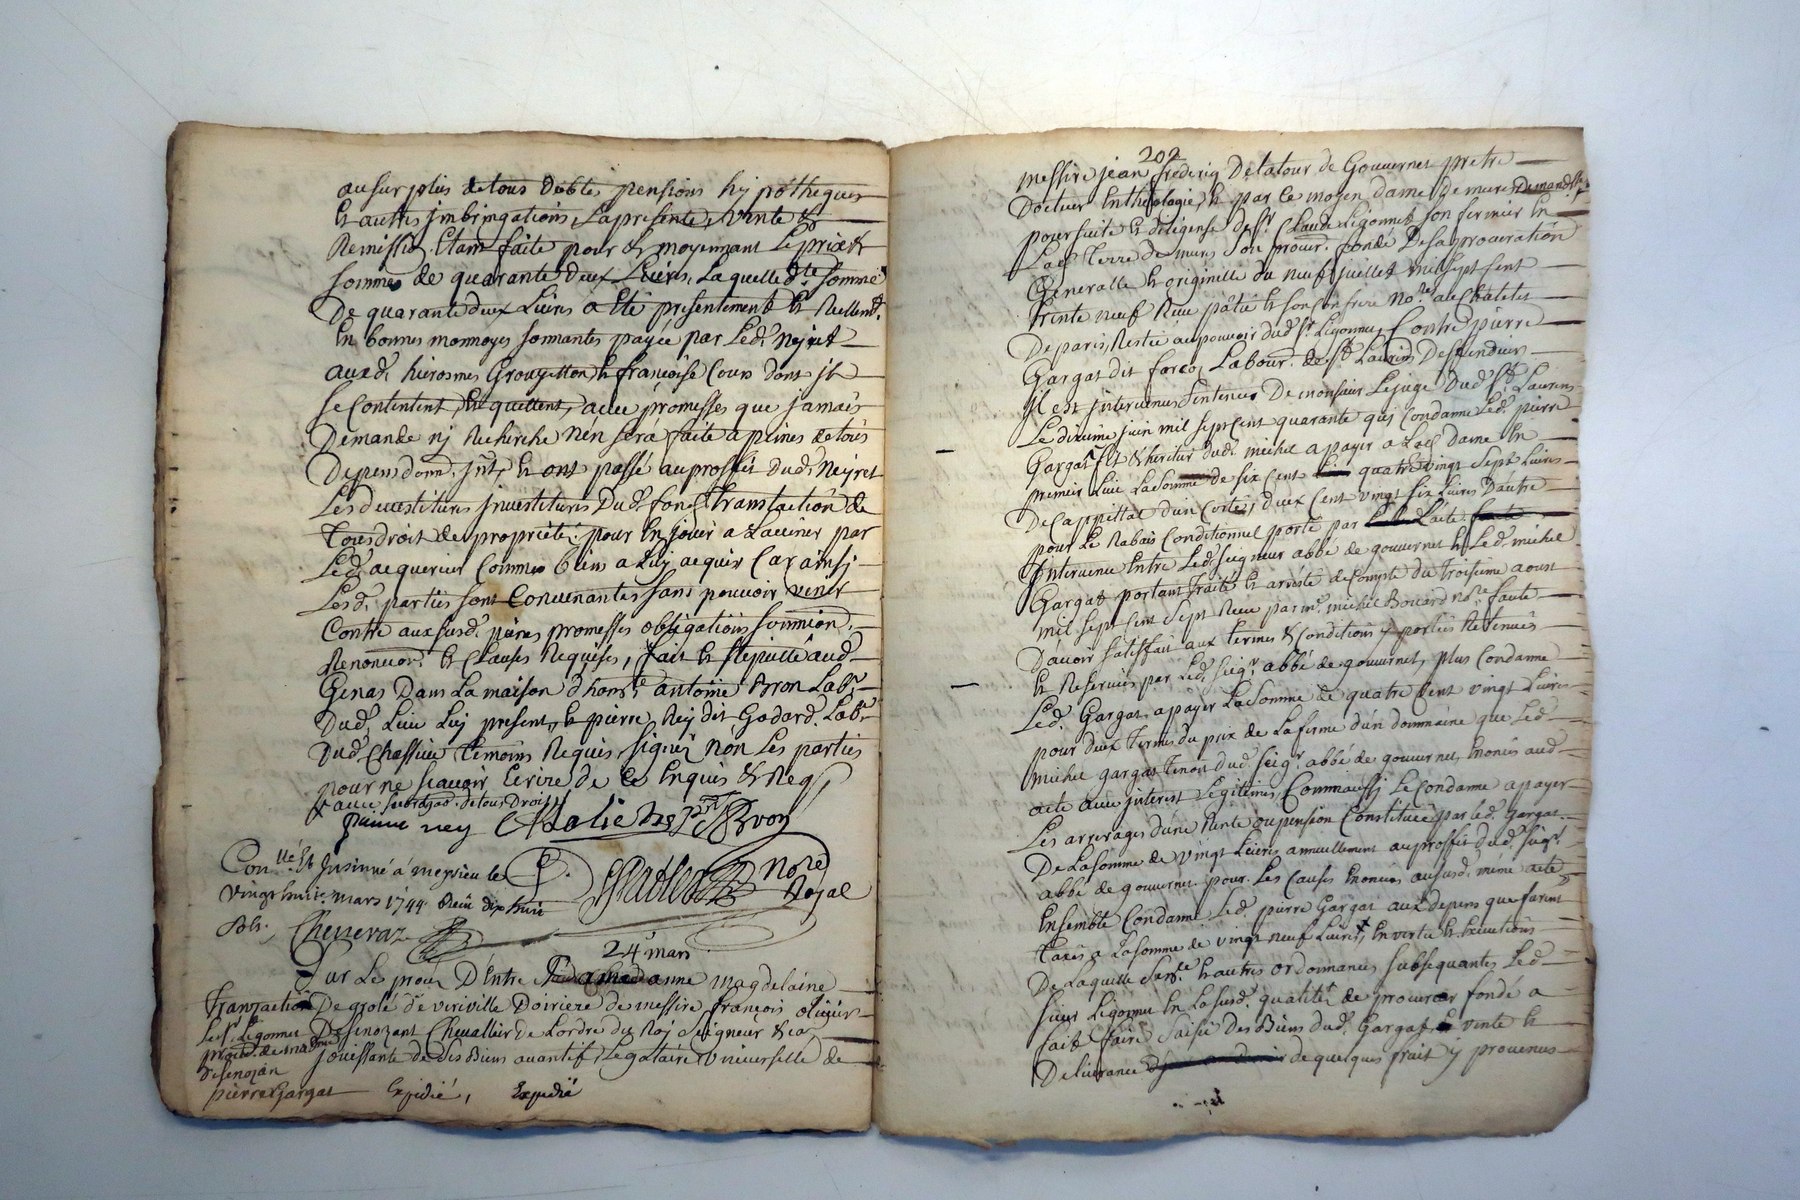 au surplus de tous debtes pensions hÿpotheques
et autres jmbringations, La presente vente &
Remission Etant faite pour & moyennant Le prix &
somme de quarante deux Livres, Laquelle dte somme
De quarante deux Livres a eté presentement & Reellemt.
En bonnes monnoyes sonnantes payée par Led. Neyret
auxd. hierosme Grougetton, & françoise Cours dont jls
se Contentent, En quittent, avec promesses que jamais
Demande nj Recherche N'en sera faite a peines de tous
Depens domm. jnts. & ont passé au proffit dud. Neyret
Les devestitures jnvestitures Dud. fond Translaction de
Tous droit de proprieté pour En jouir a L'avenir par
Led. acquereur Comme bien a Luy acquis Car ainsj
Lesd. parties sont Convenantes sans pouvoir venir
Contre aux susd. peines promesses obligations soumiond.
Renoncon. & Clauses Requises, fait & stipullé aud.
Genas Dans La maison d'honte. antoine Bron Labr.
Dud. Lieu Luj present, & pierre Rey dit Godard Labr.
Dud. Chassieu temoins Requis signés non Les parties
pour ne scavoir Ecrire de Ce Enquis & Req
& avec subrogaõn. de tous Droit
pierre rey A Bron
Con.llé Et Jnsinué á meysieu le
vingt huit mars 1744. Reçu dix huit
sols. Chenevaz
Nore
Royal
24e mars
Sur Le procés D'Entre Dame anne magdelaine
Transaction De grolé de viriville Doüriere de messire françois olivier
Le sr. Ligonnet De senozant Chevallier de L'ordre du Roj Seigneur &ca
procr. de made jouissante de ses Biens avantif, Legataire universelle de
De senozan
pierre Gargat Expedié, Expedié
202
messire jean frederiq De Latour de Gouvernet pretre
Docteur En theologie, & par Ce moyen dame de mures Demandsse.
poursuite & diligense de sr. Claude Ligonnet son fermier En
Lad. Terre de mures son procur. fondé De sa procuration
Generalle & originelle du neuf juillet mil sept Cent
trente neuf Reçue patu & son Confrere Nores. au Châtelet
De paris, Restée au pouvoir dud. sr. Ligonnet, Contre pierre
Gargat dit farço, Labour. de st. Laurens Deffendeur
Jl est jntervenu sentence De monsieur Le juge Dud. st. Laurens
Le dixieme juin mil sept Cent quarante quj Condamne Led. pierre
Gargat fils & heritier dud. michel a payer a Lad. Dame En
premier Lieu La somme de six Cent quatre vingt sept Livres
De Cappittal d'un Cotté, deux Cent vingt six Livres D'autre
pour Le Rabais Conditionnel porté par L'acte
Jntervenu Entre Led. seigneur abbé de gouvernet & Led. michel
Gargat portant Traité & arreté de Compte du troisieme aoust
mil sept Cent sept Reçu par me. michel Bouard Nore. faute
D'avoir satisfait aux termes & Conditions y portées Retenues
& Reservées par Led. seigr. abbé de gouvernet, plus Condamne
Led. Gargat a payer La somme de quatre Cent vingt Livres
pour deux Termes du prix de La ferme d'un dommaine que Led.
michel gargat Tenoit dud. seigr. abbé de gouvernet, Enoncés aud.
acte avec jnterest Legitimes, Comm'aussi Le Condamne a payer
Les arrerages d'une Rente ou pension Constituée par Led. Gargat
De La somme de vingt Livres annuellement au proffit dud. seigr.
abbé de gouvernet pour Les Causes Enoncées au susd. même acte
Ensemble Condamne Led. pierre Gargat aux depens que furent
taxés a La somme de vingt neuf Livres, En vertu & Execution
De Laquelle sentce. & autres ordonnances subsequentes Led.
sieur Ligonnet En La susd. qualité de procureur fondé a
fait faire saisie Des Biens dud. Gargat & vente &
Delivrance de quelques fruit y provenus